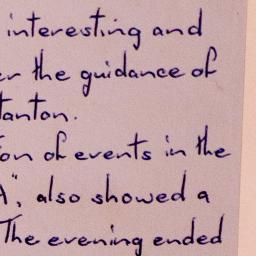 interesting and
er the guidance of
tanton.
on of events in the
A", also showed a
The evening ended